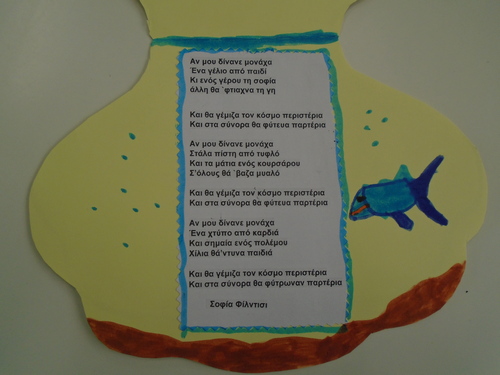 Αν μου δίνανε μονάχα
Ένα γέλιο από παιδί
Κι ενός γέρου τη σοφία
άλλη θα ΄φτιαχνα τη γη
Και θα γέμιζα τον κόσμο περιστέρια
Και στα σύνορα θα φύτευα παρτέρια
Αν μου δίνανε μονάχα
Στάλα πίστη από τυφλό
Και τα μάτια ενός κουρσάρου
Σ'όλους θά ΄βαζα μυαλό
Και θα γέμιζα τον κόσμο περιστέρια
Και στα σύνορα θα φύτευα παρτέρια
Αν μου δίνανε μονάχα
Ένα χτύπο από καρδιά
Και σημαία ενός πολέμου
Χίλια θά'ντυνα παιδιά
Και θα γέμιζα τον κόσμο περιστέρια
Και στα σύνορα θα φύτρωναν παρτέρια
Σοφία Φίλντισι